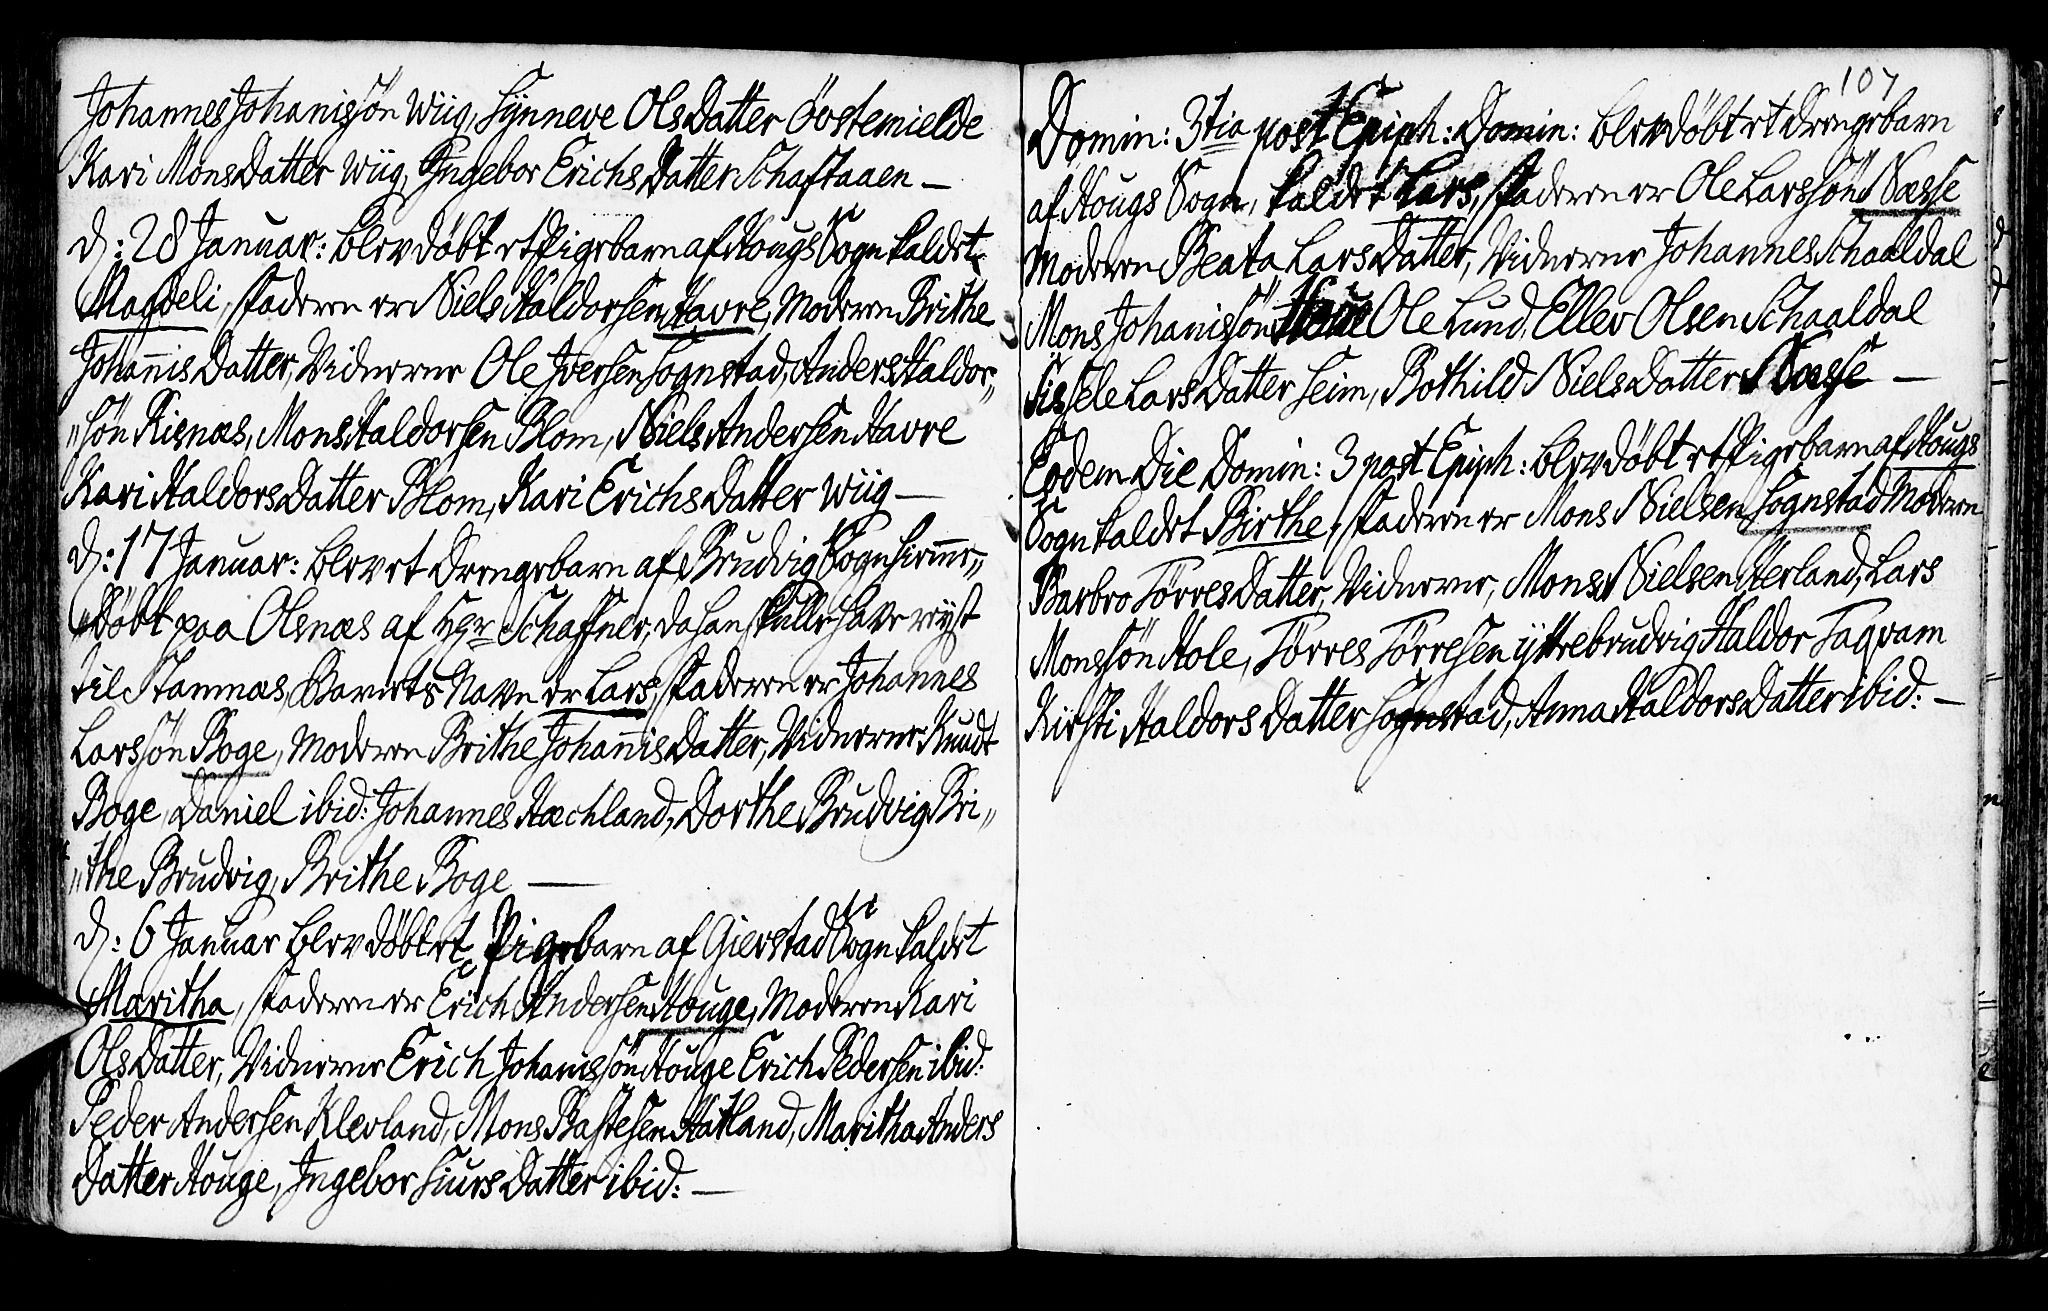 Johannes Johanissøn Wiig, Synneve OlsDatter Øvstemielde
Kari MonsDatter Wiig, Yngebor ErichsDatter Schaftaaen —
D: 28 Januar: blev døbt et Pigebarn af Hougs Sogn kaldet
Magdeli, Faderen er Niels Haldorsen Havre, Moderen Brithe
JohannisDatter, Vidnerne Ole Iversen Sognstad, Anders Haldor„
„søn Risnæs, Mons Haldorsen Blom, Niels Andersen Havre
Kari HaldorsDatter Blom, Kari ErichsDatter Wiig —
D: 17 Januar: blev et Drengebarn af Brudvig Sogn hieme„
„døbt paa Olsnæs af Hr Schaffner, da han skulle have reyst
til Stamnæs, Barnets Navn er Lars, Faderen er Johannes
Larssøn Boge, Moderen Brithe JohannisDatter, Vidnerne Knudt
Boge, Daniel ibid: Johannes Hæchland, Dorthe Brudvig Bri„
„the Brudvig, Brithe Boge —
D: 6 Januar blev døbt et Pigebarn af Gierstad Sogn kaldet
Maritha, Faderen er Erich Andersen Houge, Moderen Kari
OlsDatter, Vidnerne Erich Johanissøn Houge Erich Pedersen ibid:
Peder Andersen Klevland, Mons Bastesen Hatland, Maritha Anders
Datter Houge, Ingebor SiursDatter ibid: —
107
Domin: 3tia post Epiph: Domin: blev døbt et Drengebarn
af Hougs Sogn, kaldet Lars, Faderen er Ole Larssøn Næsse
Moderen Beata LarsDatter, Vidnerne Johannes Schaaldal
Mons Johanissøn Ole Lund, Ellev Olsen Schaaldal
Sissele LarsDatter Seim, Bothild NielsDatter Næsse —
Eodem Die Domin: 3 post Epiph: blev døbt et Pigebarn af Hougs
Sogn kaldet Birthe, Faderen er Mons Nielsen Sognstad Moderen
Barbro TørresDatter, Vidnerne, Mons Nielsen Herland, Lars
Monssøn Hole, Tørres Tørresen yttrebrudvig Haldor Taqvam
Kirsti HaldorsDatter Sognstad, Anna HaldorsDatter ibid: —